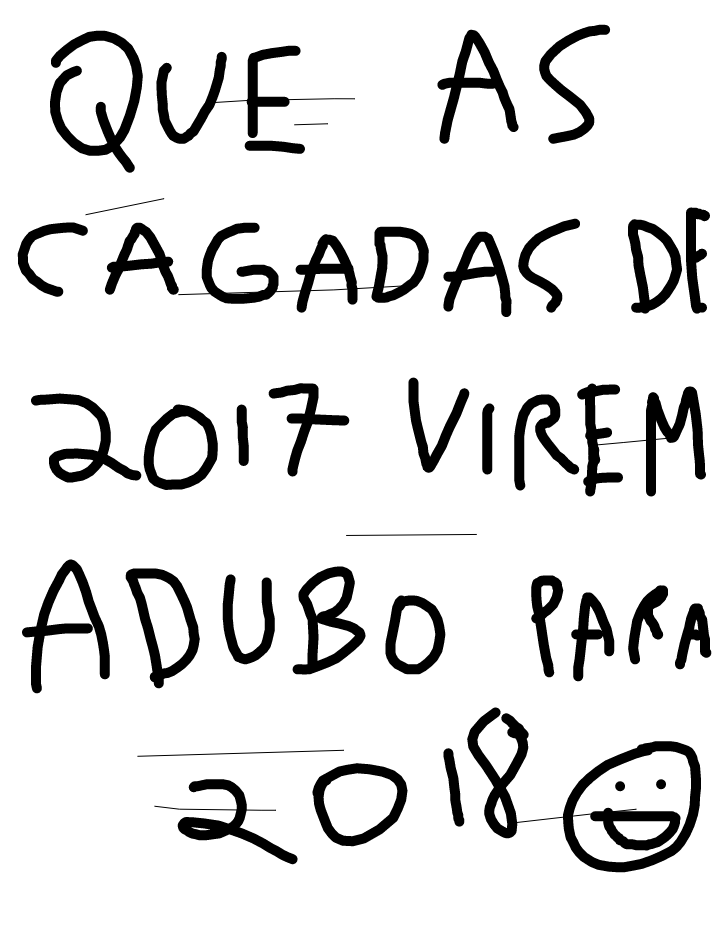 QUE AS
CAGADAS DE
2017 VIREM
ADUBO PARA
2018